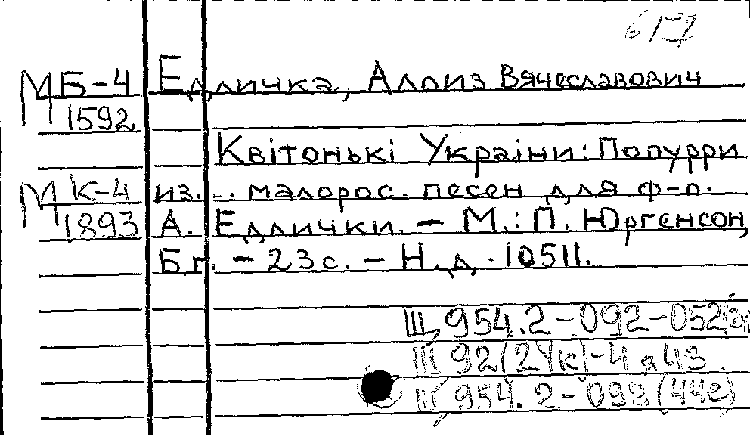 617
МБ-4 Едличка, Алоиз Вячеславович
1592
Квітонькі Україіни: Попурри
МК-4 из... малорос. песен для ф-п.
1893 А. Едлички. - М.: П. Юргенсон,
Б.г. - 23 с. - Н.д. 10511.
Щ 954.2-092-052
Щ 92(2Ук)-4 я43
Щ 954.2-098(44г)